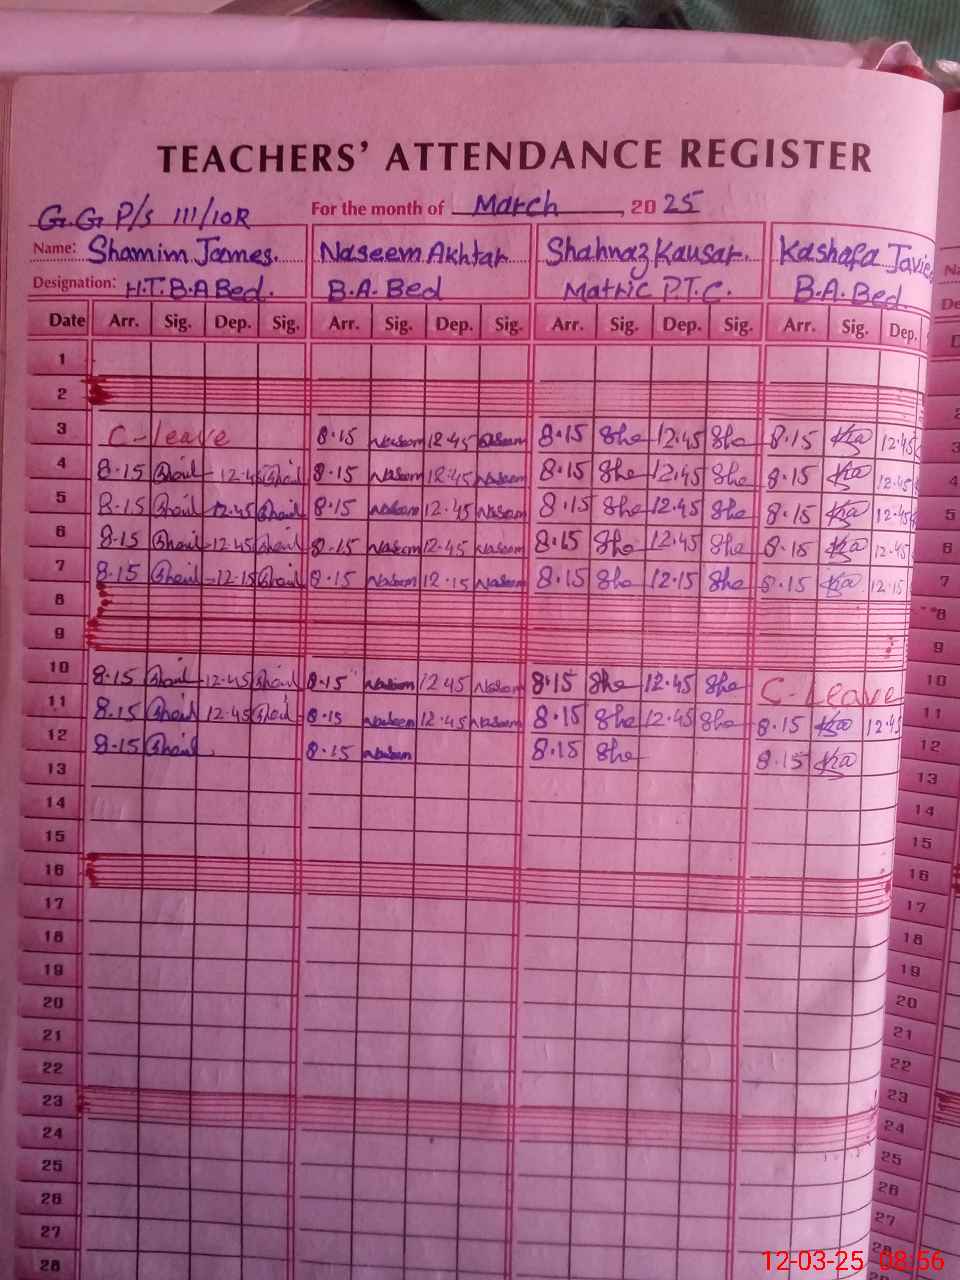 TEACHERS' ATTENDANCE REGISTER
G.G P/s 111/10R For the month of March, 2025
Name: Shamim James. Naseem Akhtar Shahnaz Kausar. Kashafa Javie
Designation: H.T.B.A Bed. B.A. Bed Matric P.T.C. B.A. Bed
Date Arr. Sig. Dep. Sig. Arr. Sig. Dep. Sig. Arr. Sig. Dep. Sig. Arr. Sig. Dep.
1
2
3 C-leave 8.15 Naseem 12.45 Naseem 8.15 She 12.45 She 8.15 Ka 12.45 3
4 8.15 12.45 8.15 Naseem 12.45 Naseem 8.15 She 12.45 She 8.15 Ka 12.45 4
5 8.15 12.45 8.15 Naseem 12.45 Naseem 8.15 She 12.45 She 8.15 Ka 12.45 5
6 8.15 12.45 8.15 Naseem 12.45 Naseem 8.15 She 12.45 She 8.15 Ka 12.45 6
7 8.15 12.15 8.15 Naseem 12.15 Naseem 8.15 She 12.15 She 8.15 Ka 12.15 7
8 8
9 9
10 8.15 12.45 8.15 Naseem 12.45 Naseem 8.15 She 12.45 She C-Leave 10
11 8.15 12.45 8.15 Naseem 12.45 Naseem 8.15 She 12.45 She 8.15 Ka 12.45 11
12 8.15 8.15 Naseem 8.15 She 8.15 Ka 12
13 13
14 14
15 15
16 16
17 17
18 18
19 19
20 20
21 21
22 22
23 23
24 24
25 25
26 26
27 27
28 28
12-03-25 08:56